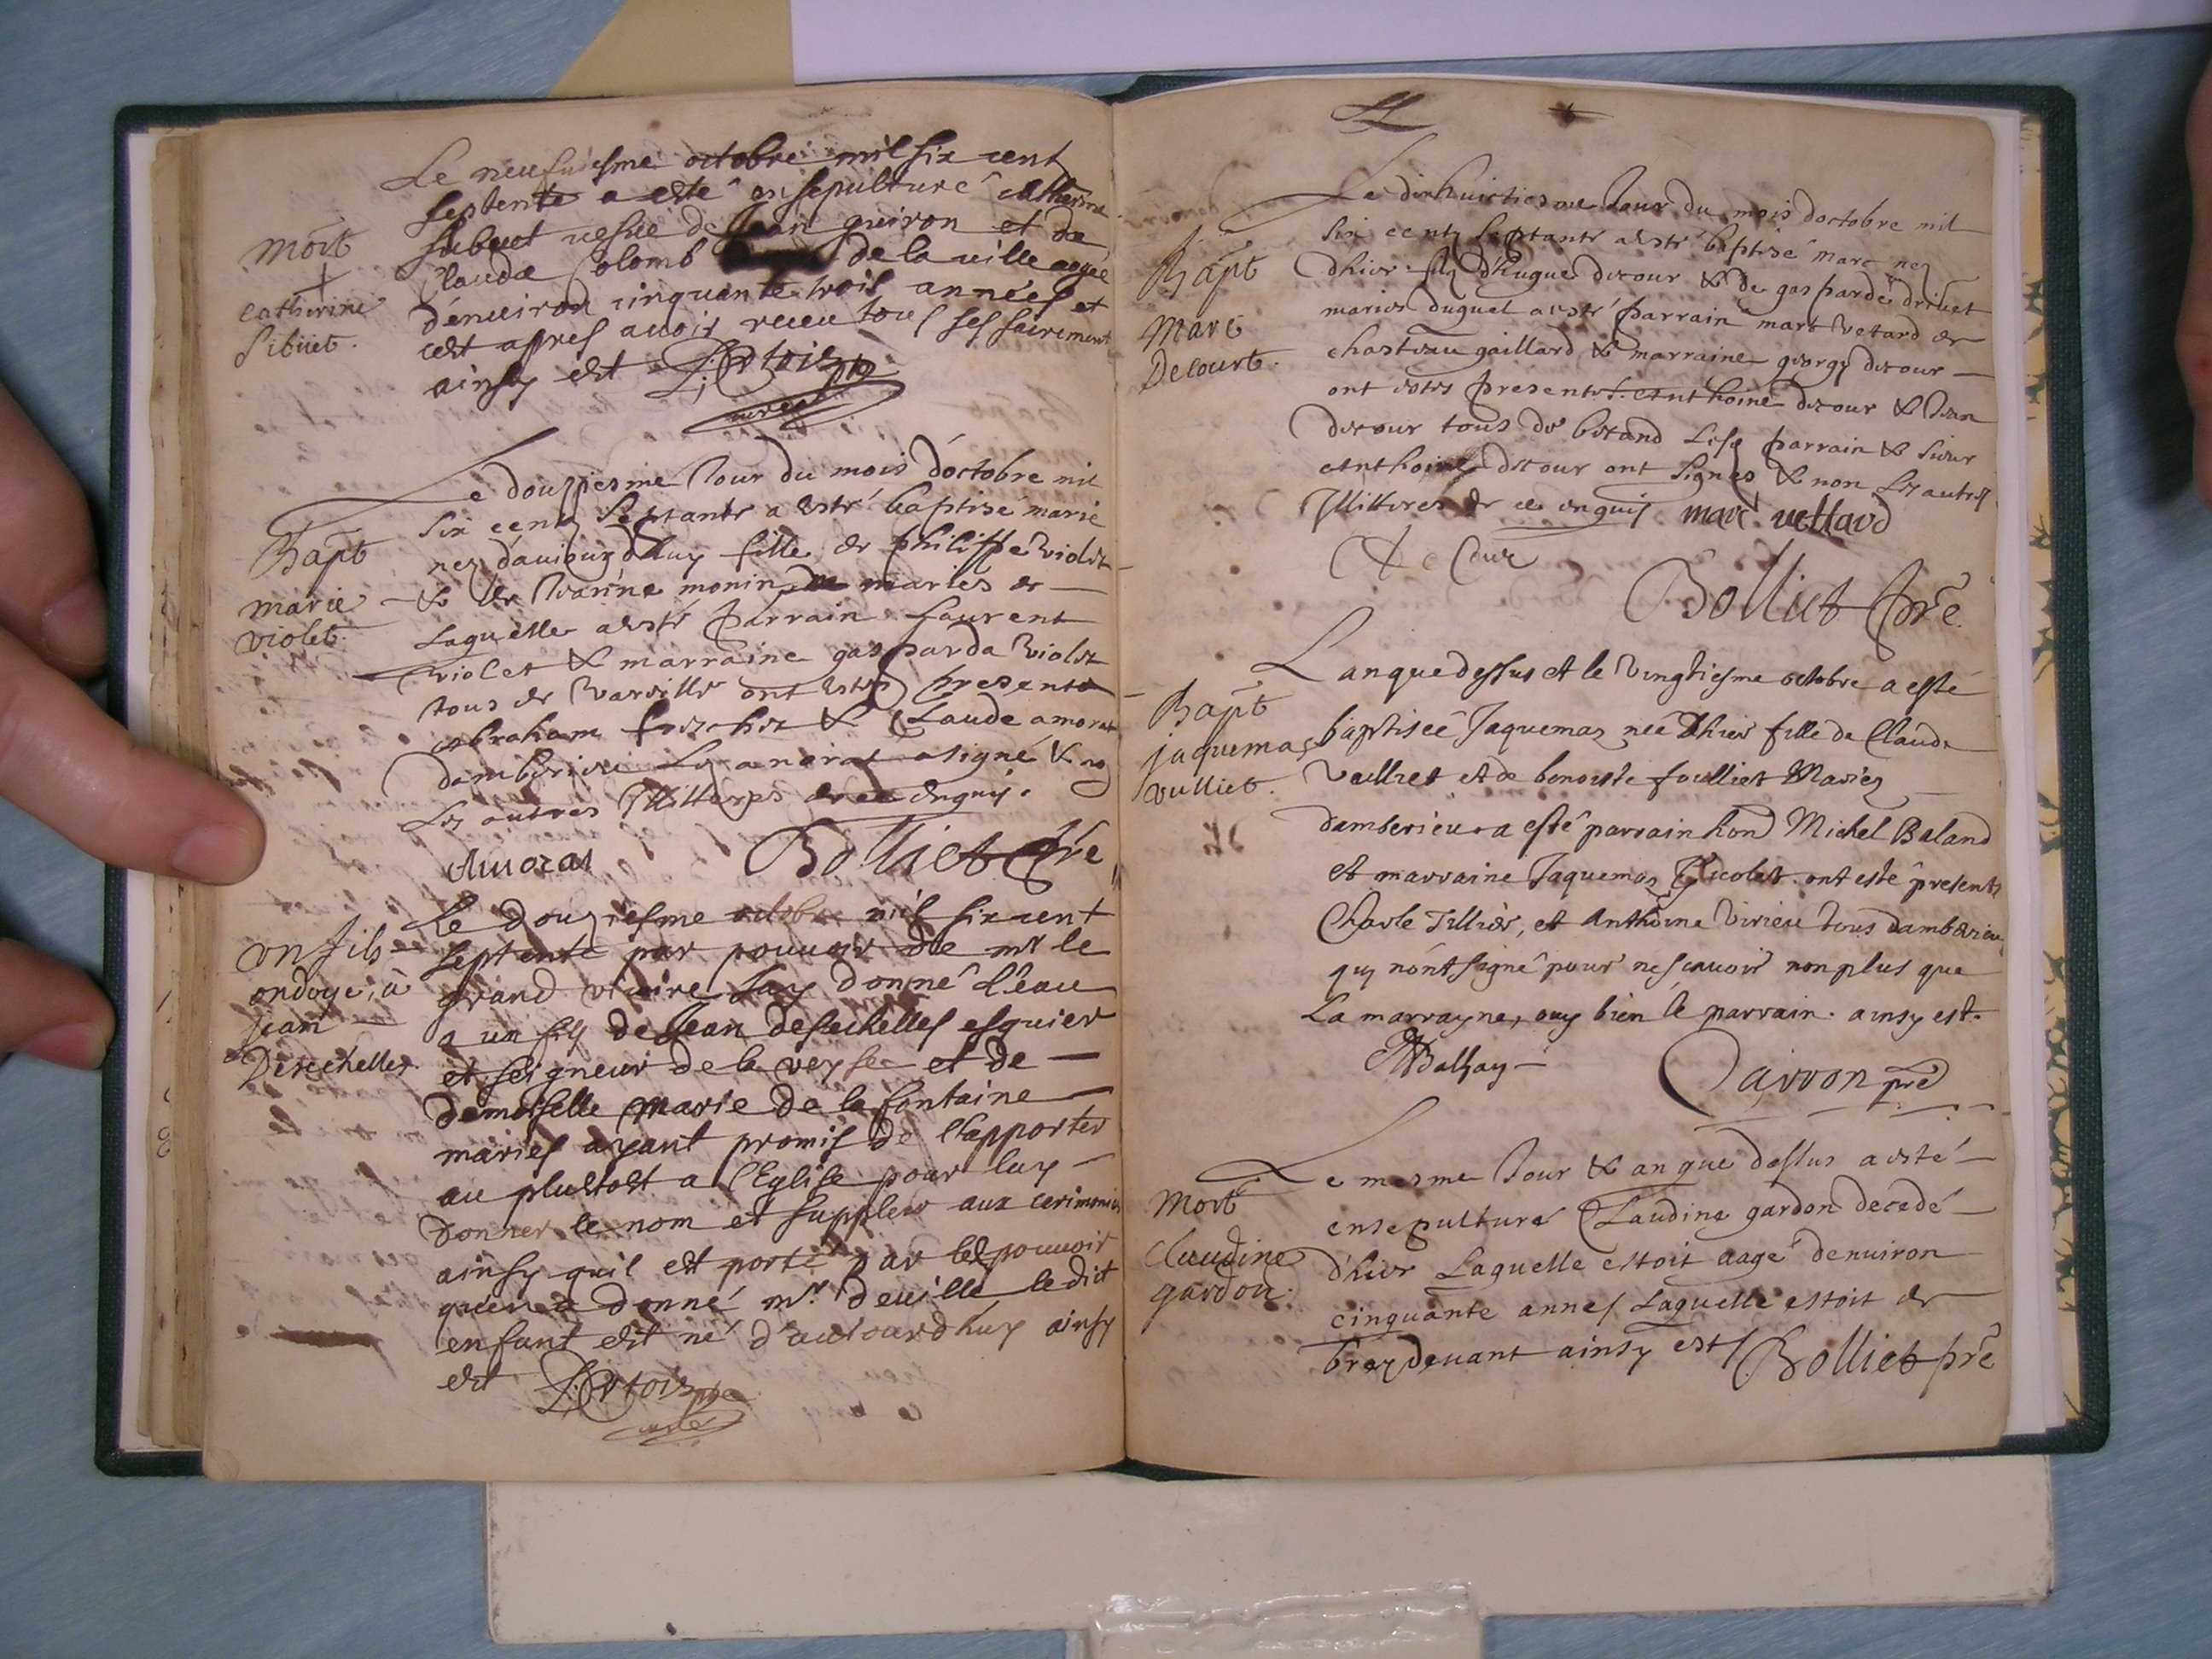 Le neufuiesme octobre mil six cent
septente a esté en sepulture catherine
Sibuet vefue de Jean guiron et de
Claude Colomb de la ville agée
d'enuiron cinquante trois années et
cest apres auoir receu tous ses sacrement
ainsy est
mort
catherine
Sibuet.
Le douziesme Jour du mois d'octobre mil
six centz septante a esté baptisé marie
nez d'auiourdhuy fille de philippe violet
& de Jeanne monin mariés de
Laquelle a esté parrain Laurent
violet & marraine gasparda violet
tous de Vareille ont estes presents
abraham & Claude amorat
damberieu Led amorat a signé & no
Les autres Illitterés de ce enquis.
Amorat Bolliet pre
Bapt
marie
violet.
Le douziesme octobre mil six cent
septente par pouuoir de mr le
grand vicaire Jay donné l'eau
a un fils de Jean desechelles esquier
et seigneur de la veyse et de
demoiselle marie de la fontaine
mariés ayant promis de l'apporter
au plustost a l'Eglise pour luy
donner le nom et suppleer aux cerimonies
ainsy quil est porté par les pouuoir
quen a donné mr deuille ledict
enfant est né d'auiourdhuy ainsy
est
un fils
ondoye, à
jean
Desechelles
Le dixhuictiesme Jour du mois doctobre mil
Six centz Septante a esté baptisé marc nez
dhier filz d'hugue decour & de gasparde driuet
mariés duquel a esté parrain marc vetard de
chasteau gaillard & marraine georgy decour
ont estes presents. Anthoine decour & Jean
decour tous de betand Lesd parrain & sieur
Anthoine decour ont signés & non Les autres
Illitterés de ce enquis marc vettard
De Cour
Bolliet pre.
Bapt
Marc
Decourt.
Lan que dessus et le vingtiesme octobre a esté
baptiseé Jaquemaz neé dhier fille de Claude
Vulliet et de benoiste foulliet Mariez
damberieu. a esté parrain hond Michel Baland
et marraine Jaquemaz Nicolet. ont esté presents
Charle Tillier, et Anthoine Virieu tous damberieu
qui n'ont signé pour ne scauoir non plus que
La marrayne, ouy bien le parrain. ainsy est.
Carron pre
Bapt
jaquemaz
vulliet.
Le mesme Jour & an que dessus a esté
ensepulturé Claudine gardon decedé
d'hier Laquelle estoit aagé denuiron
cinquante annes Laquelle estoit de
breydeuant ainsy est Bolliet pre
Mort
Claudine
gardon.